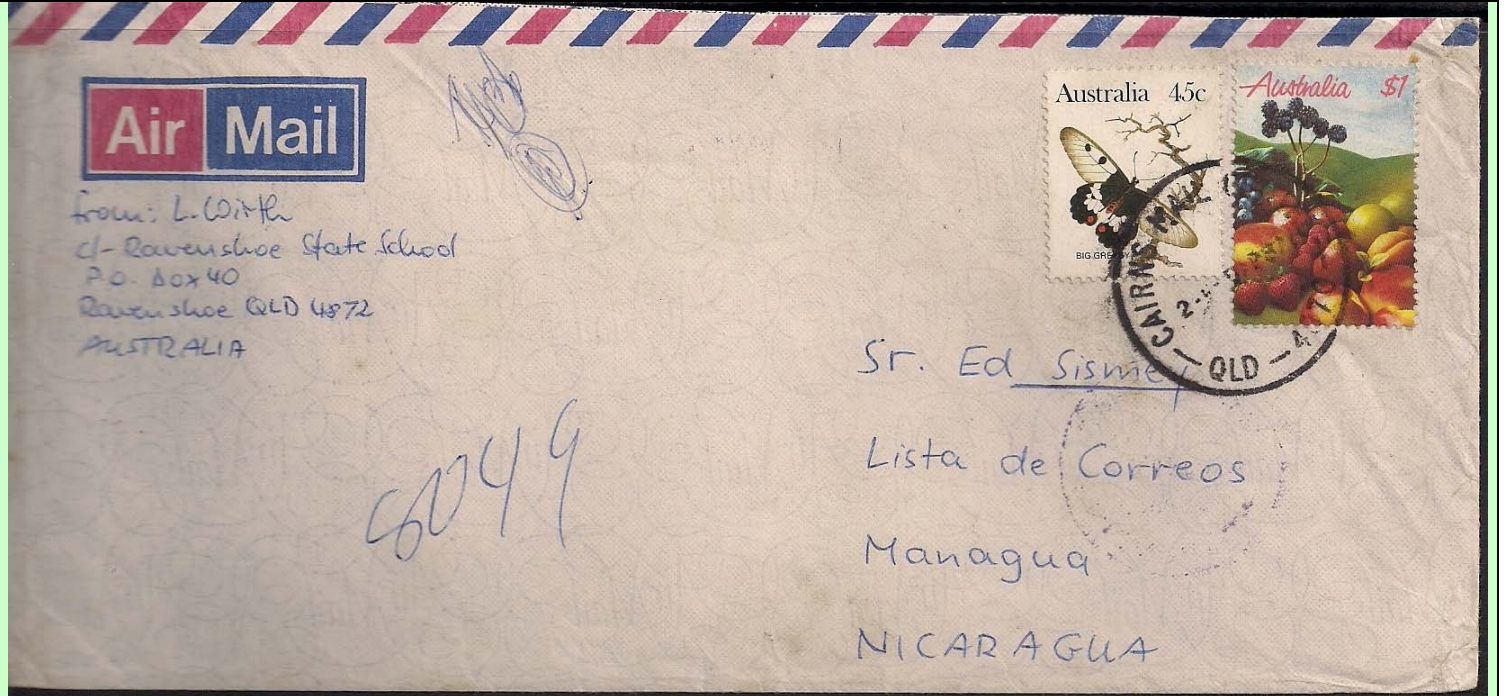 Air Mail
from: L. Wirth
c/- Ravenshoe State School
P.O. Box 40
Ravenshoe QLD 4872
AUSTRALIA
Australia 45c
BIG GREASY
Australia $1
CAIRNS MAIL
QLD
Sr. Ed Sismey
Lista de Correos
Managua
NICARAGUA
8049